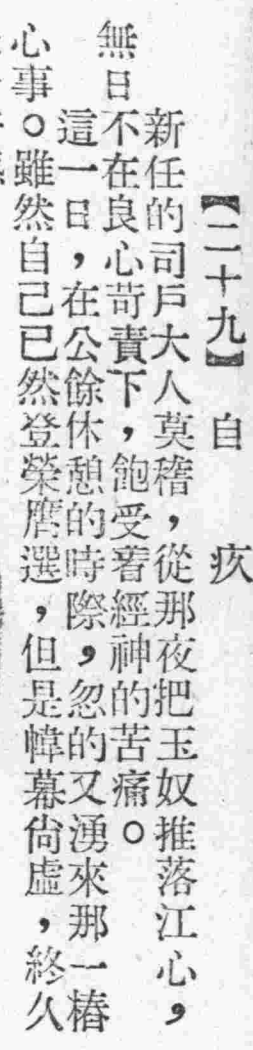 【二十九】自疚
新任的司戶大人莫稽，從那夜把玉奴推落江心，
無日不在良心苛責下，飽受着經神的苦痛。
這一日，在公餘休憩的時際，忽的又湧來那一樁
心事。雖然自己已然登榮膺選，但是幃幕尙虛，終久